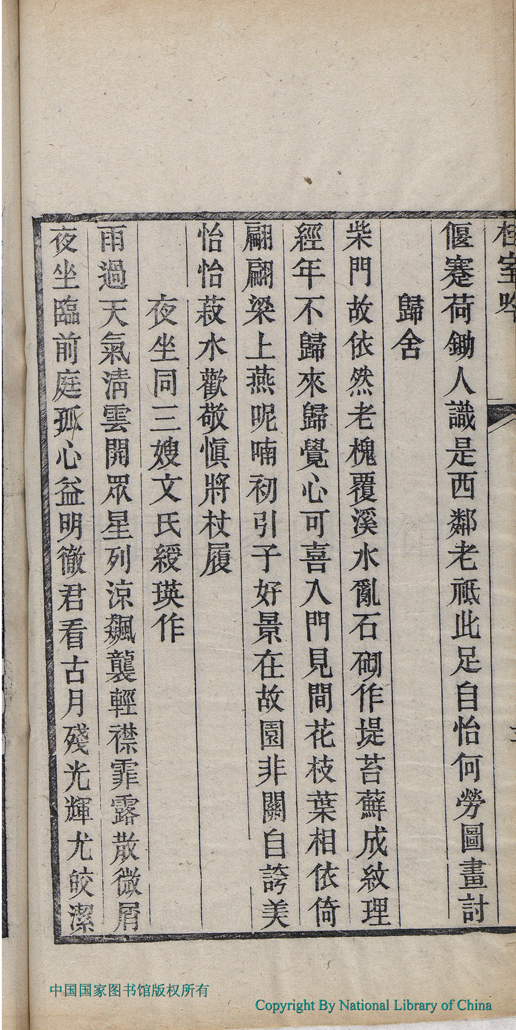 桂室吟
偃蹇荷鋤人識是西鄰老祗此足自怡何勞圖畫討
歸舍
柴門故依然老槐覆溪水亂石砌作堤苔蘚成紋理
經年不歸來歸覺心可喜入門見間花枝葉相依倚
翩翩梁上燕呢喃初引子好景在故園非關自誇美
怡怡菽水歡敬愼將杖履
夜坐同三嫂文氏緩瑛作
雨過天氣淸雲開眾星列涼飆襲輕襟霏露散微屑
夜坐臨前庭孤心益明徹君看古月殘光輝尤皎潔
中国国家图书馆版权所有
Copyright By National Library of China